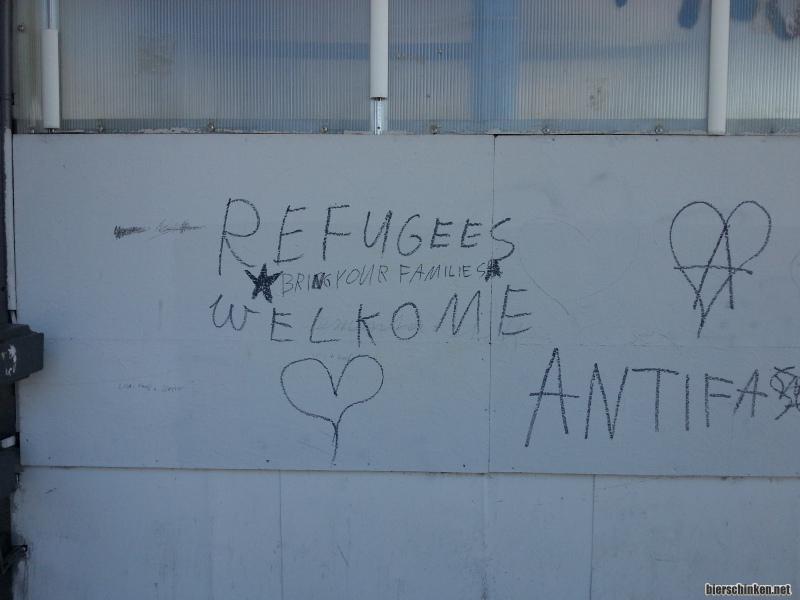 REFUGEES
BRINGYOUR FAMILIES
WELKOME
ANTIFA
bierschinken.net